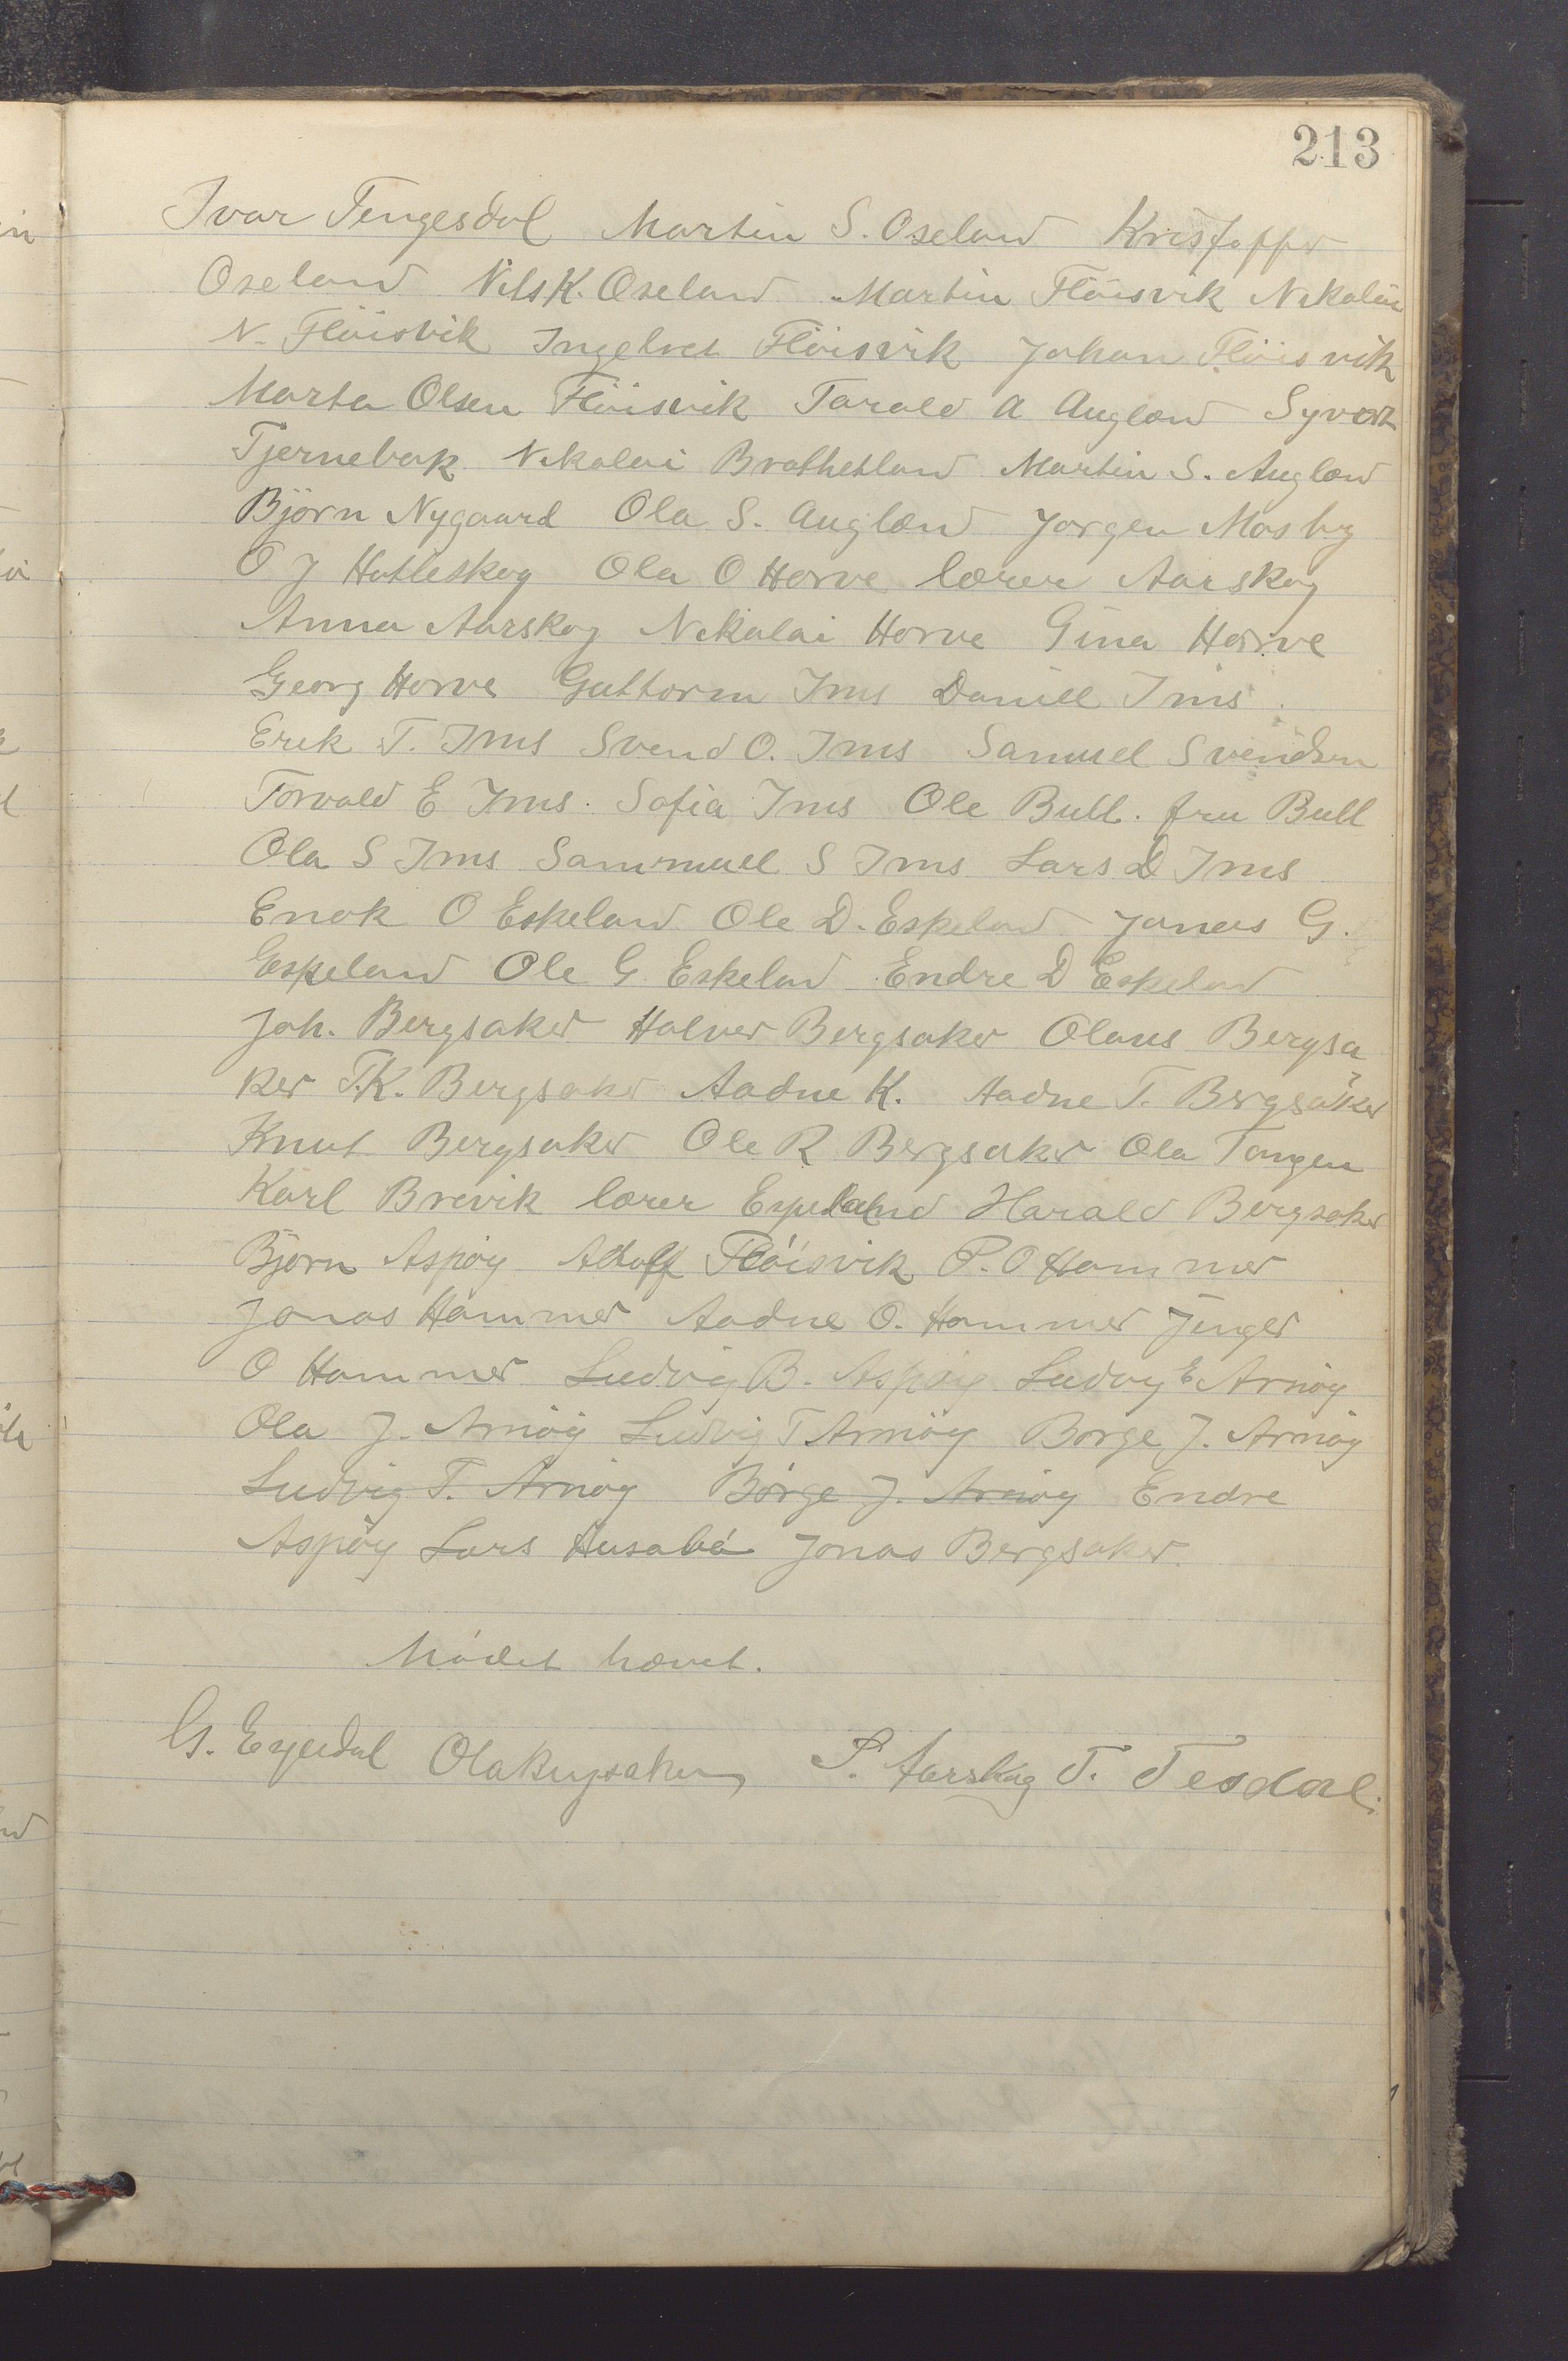 213
Ivar Tengesdal Martin S. Oseland Kristoffer
Oseland Nils K. Oseland Martin Flöisvik Nikolai
N. Flöisvik Ingebret Flöisvik Johan Flöisvik
Marta Olsen Flöisvik Tarald A Augland Syvert
Tjernebak Nikolai Brathetland Martin S. Augland
Björn Nygaard Ola S. Augland Jorgen Mosby
O J Hatleskog Ola O Horve lærer Aarskog
Anna Aarskog Nikolai Horve Gina Horve
Georg Horve Guttorm Ims Daniel Ims.
Erik T. Ims Svend O. Ims Samuel Svendsen
Torvald E Ims. Sofia Ims Ole Bull. fru Bull
Ola S Ims Sammuel S Ims Lars D Ims
Enok O Eskeland Ole D. Eskeland Jonas G.
Eskeland Ole G. Eskeland Endre D Eskeland
Joh. Bergsaker Halver Bergsaker Olaus Bergsa
ker T.K. Bergsaker Aadne K. Aadne T. Bergsaker
Knut Bergsaker Ole R Bergsaker Ola Tangen
Karl Brevik lærer Harald Bergsaker
Bjørn Aspøy Adolf Flöisvik P. O Hammer
Jonas Hammer Aadne O. Hammer
O Hammer Ludvig B. Aspøy Ludvig E Arnøy
Ola J. Arnøy Ludvig T Arnøy Børge J. Arnøy
Ludvig T. Arnøy Børge J. Arnøy Endre
Aspøy Lars Husabø Jonas Bergsaker.
Mødet hævet.
G. Espedal Ola Bergsaker P. Aarskog T. Tesdal.